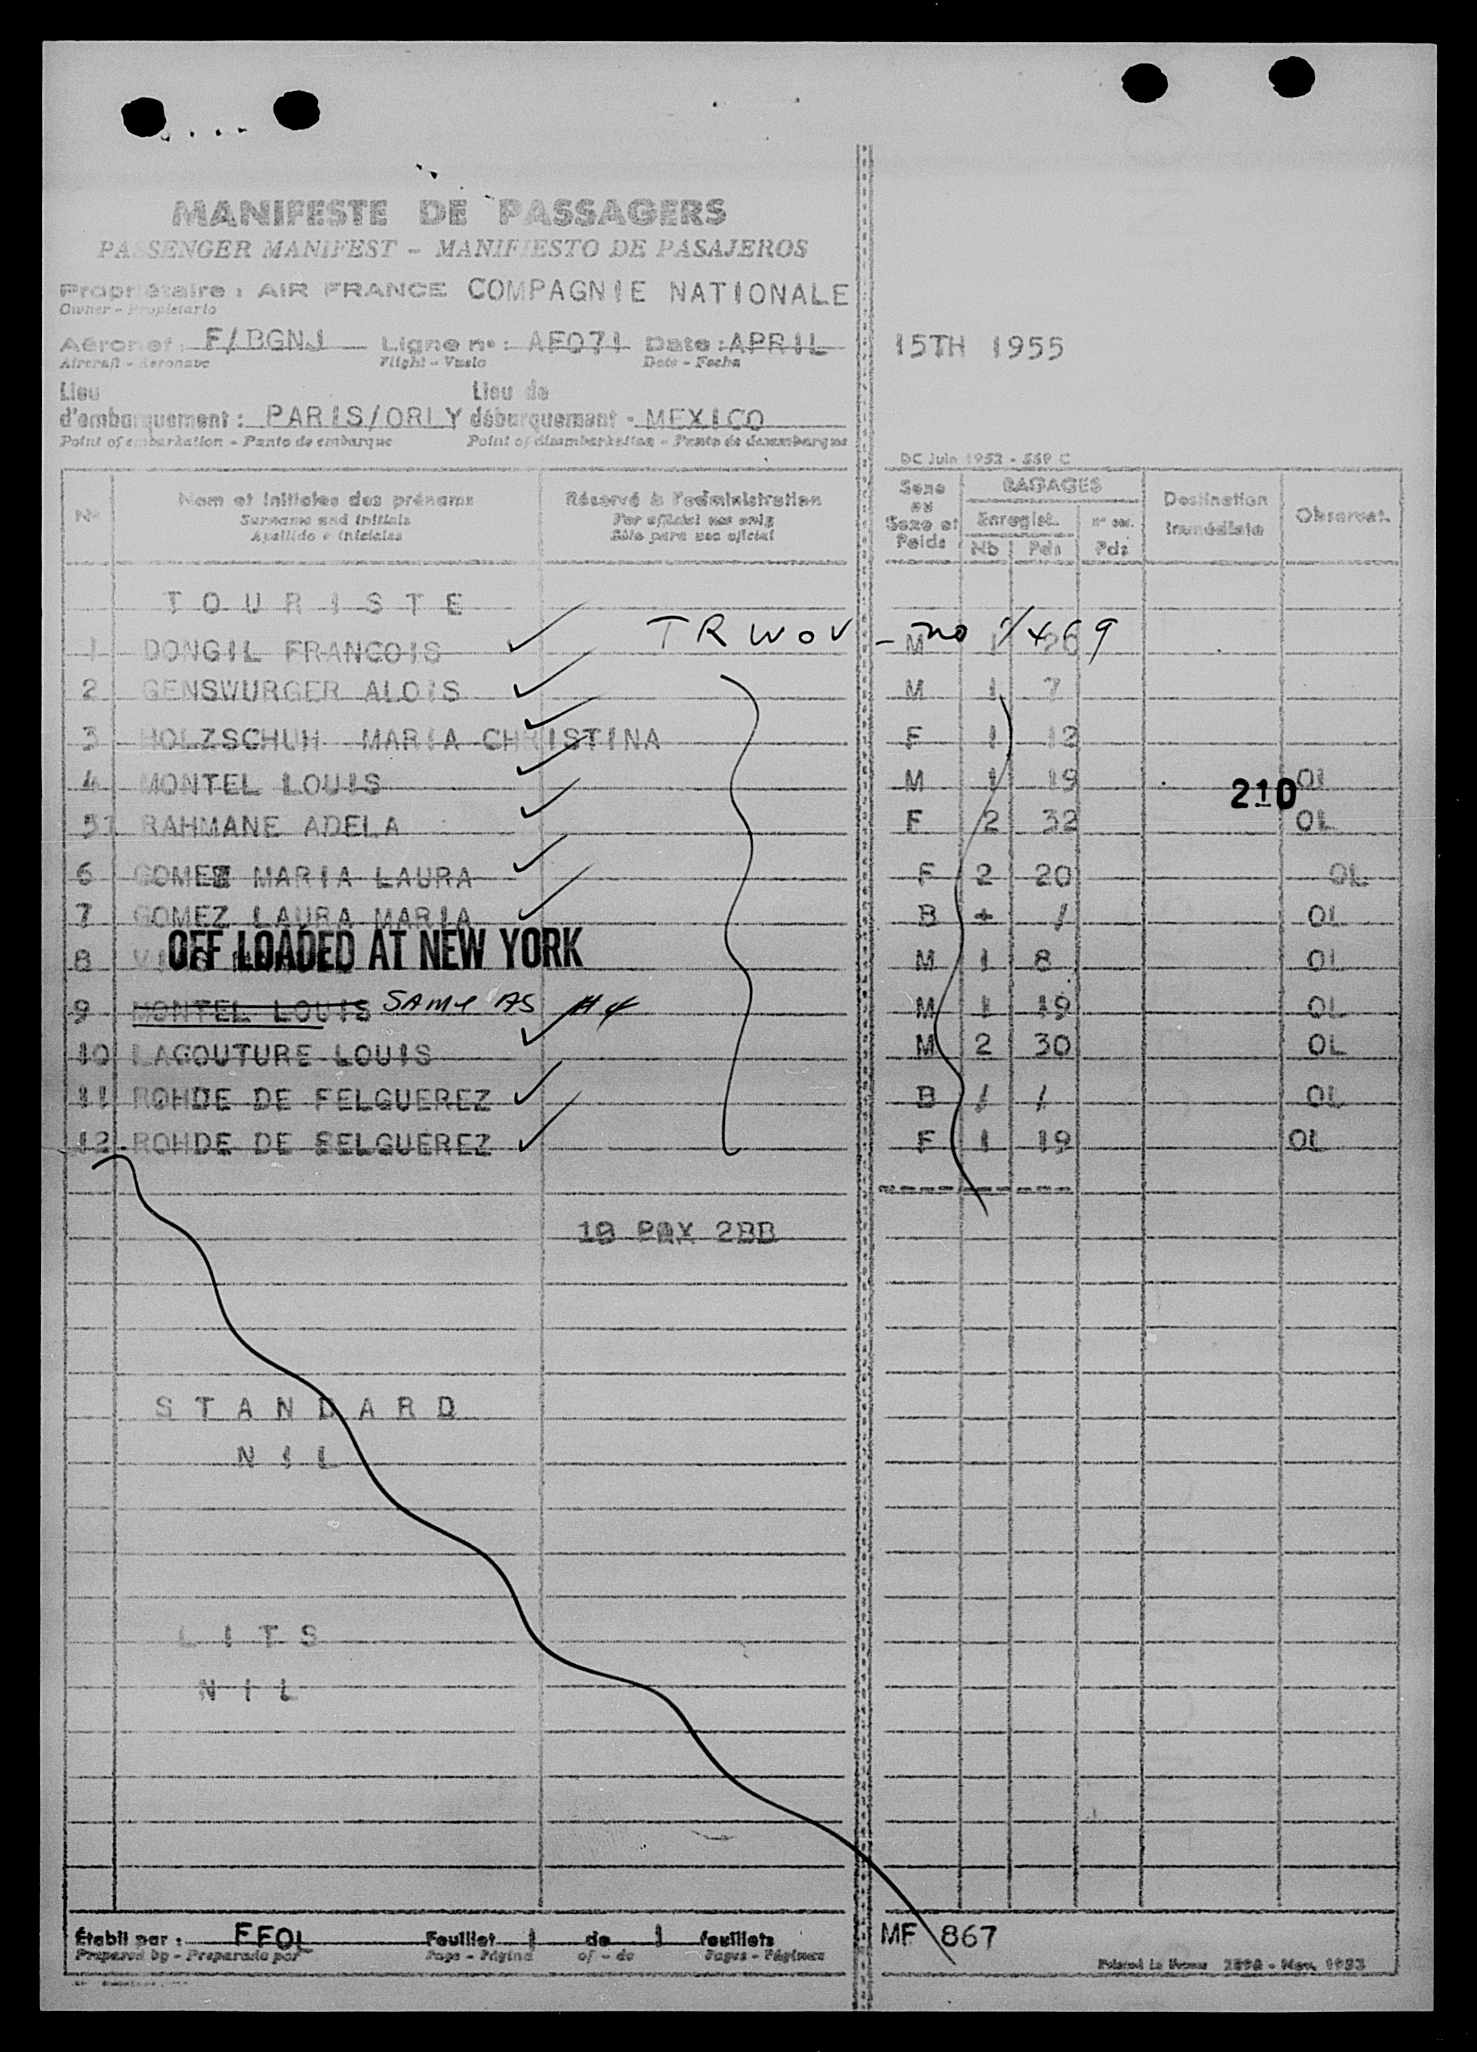 MANIFESTE DE PASSAGERS
PASSENGER MANIFEST - MANIFIESTO DE PASAJEROS
Propriétaire : AIR FRANCE COMPAGNIE NATIONALE
Owner - Propietario
Aéronef : F/BGNJ Ligne n° : AF071 Date : APRIL 15TH 1955
Aircraft - Aeronave Flight - Vuelo Date - Fecha
Lieu Lieu de
d'embarquement : PARIS/ORLY débarquement - MEXICO
Point of embarkation - Punto de embarque Point of disembarkation - Punto de desembarque
DC Juin 1952 - 559 C
N° Nom et initiales des prénoms Réservé à l'administration Sexe ou Sexe et Poids BAGAGES Destination immédiate Observat.
Surname and initials For official use only Enregist.
Apellido e iniciales Sólo para uso oficial Nb Pds Pds
TOURISTE
1 DONGIL FRANCOIS TRWOV - no M 1 26
2 GENSWURGER ALOIS M 1 7
3 HOLZSCHUH MARIA CHRISTINA F 1 12
4 MONTEL LOUIS M 1 19 OL
210
5 RAHMANE ADELA F 2 32 OL
6 GOMEZ MARIA LAURA F 2 20 OL
7 GOMEZ LAURA MARIA B / OL
OFF LOADED AT NEW YORK
8 M 1 8 OL
9 MONTEL LOUIS SAME AS #4 M 1 19 OL
10 LAGOUTURE LOUIS M 2 30 OL
11 ROHDE DE FELGUEREZ B / / OL
12 ROHDE DE FELGUEREZ F 1 19 OL
PAX 2BB
STANDARD
NIL
LITS
NIL
Établi par : FFOL Feuillet 1 de 1 feuillets MF 867
Prepared by - Preparado por Page - Página of - de Pages - Páginas
Nov. 1953